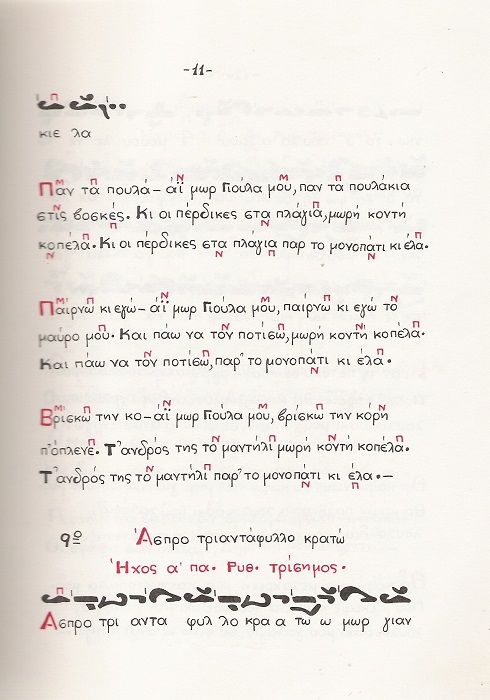 -11-
κιε λα
Πάν τα πουλά- άϊ μωρ Γιούλα μου, παν τα πουλάκια
στίς βοσκές. Κι οι πέρδικες στα πλάγια, μωρή κοντή
κοπέλα. Κι οι πέρδικες στα πλάγια παρ το μονοπάτι κι έλα.
Παίρνω κι εγώ- άϊ μωρ Γιούλα μου, παίρνω κι εγώ το
μαύρο μου. Και πάω να τον ποτίσω, μωρή κοντή κοπέλα.
Και πάω να τον ποτίσω, παρ' το μονοπάτι κι έλα.
Βρίσκω την κο- άϊ μωρ Γιούλα μου, βρίσκω την κόρη
π'όπλενε. Τ'ανδρός της το μαντήλι μωρή κοντή κοπέλα.
Τ'ανδρός της το μαντήλι παρ' το μονοπάτι κι έλα.-
9ο Άσπρο τριαντάφυλλο κρατώ
Ήχος α' πα. Ρυθ. τρίσημος.
Άσπρο τρι αντα φυλ λο κρα α τω ω μωρ γιαν